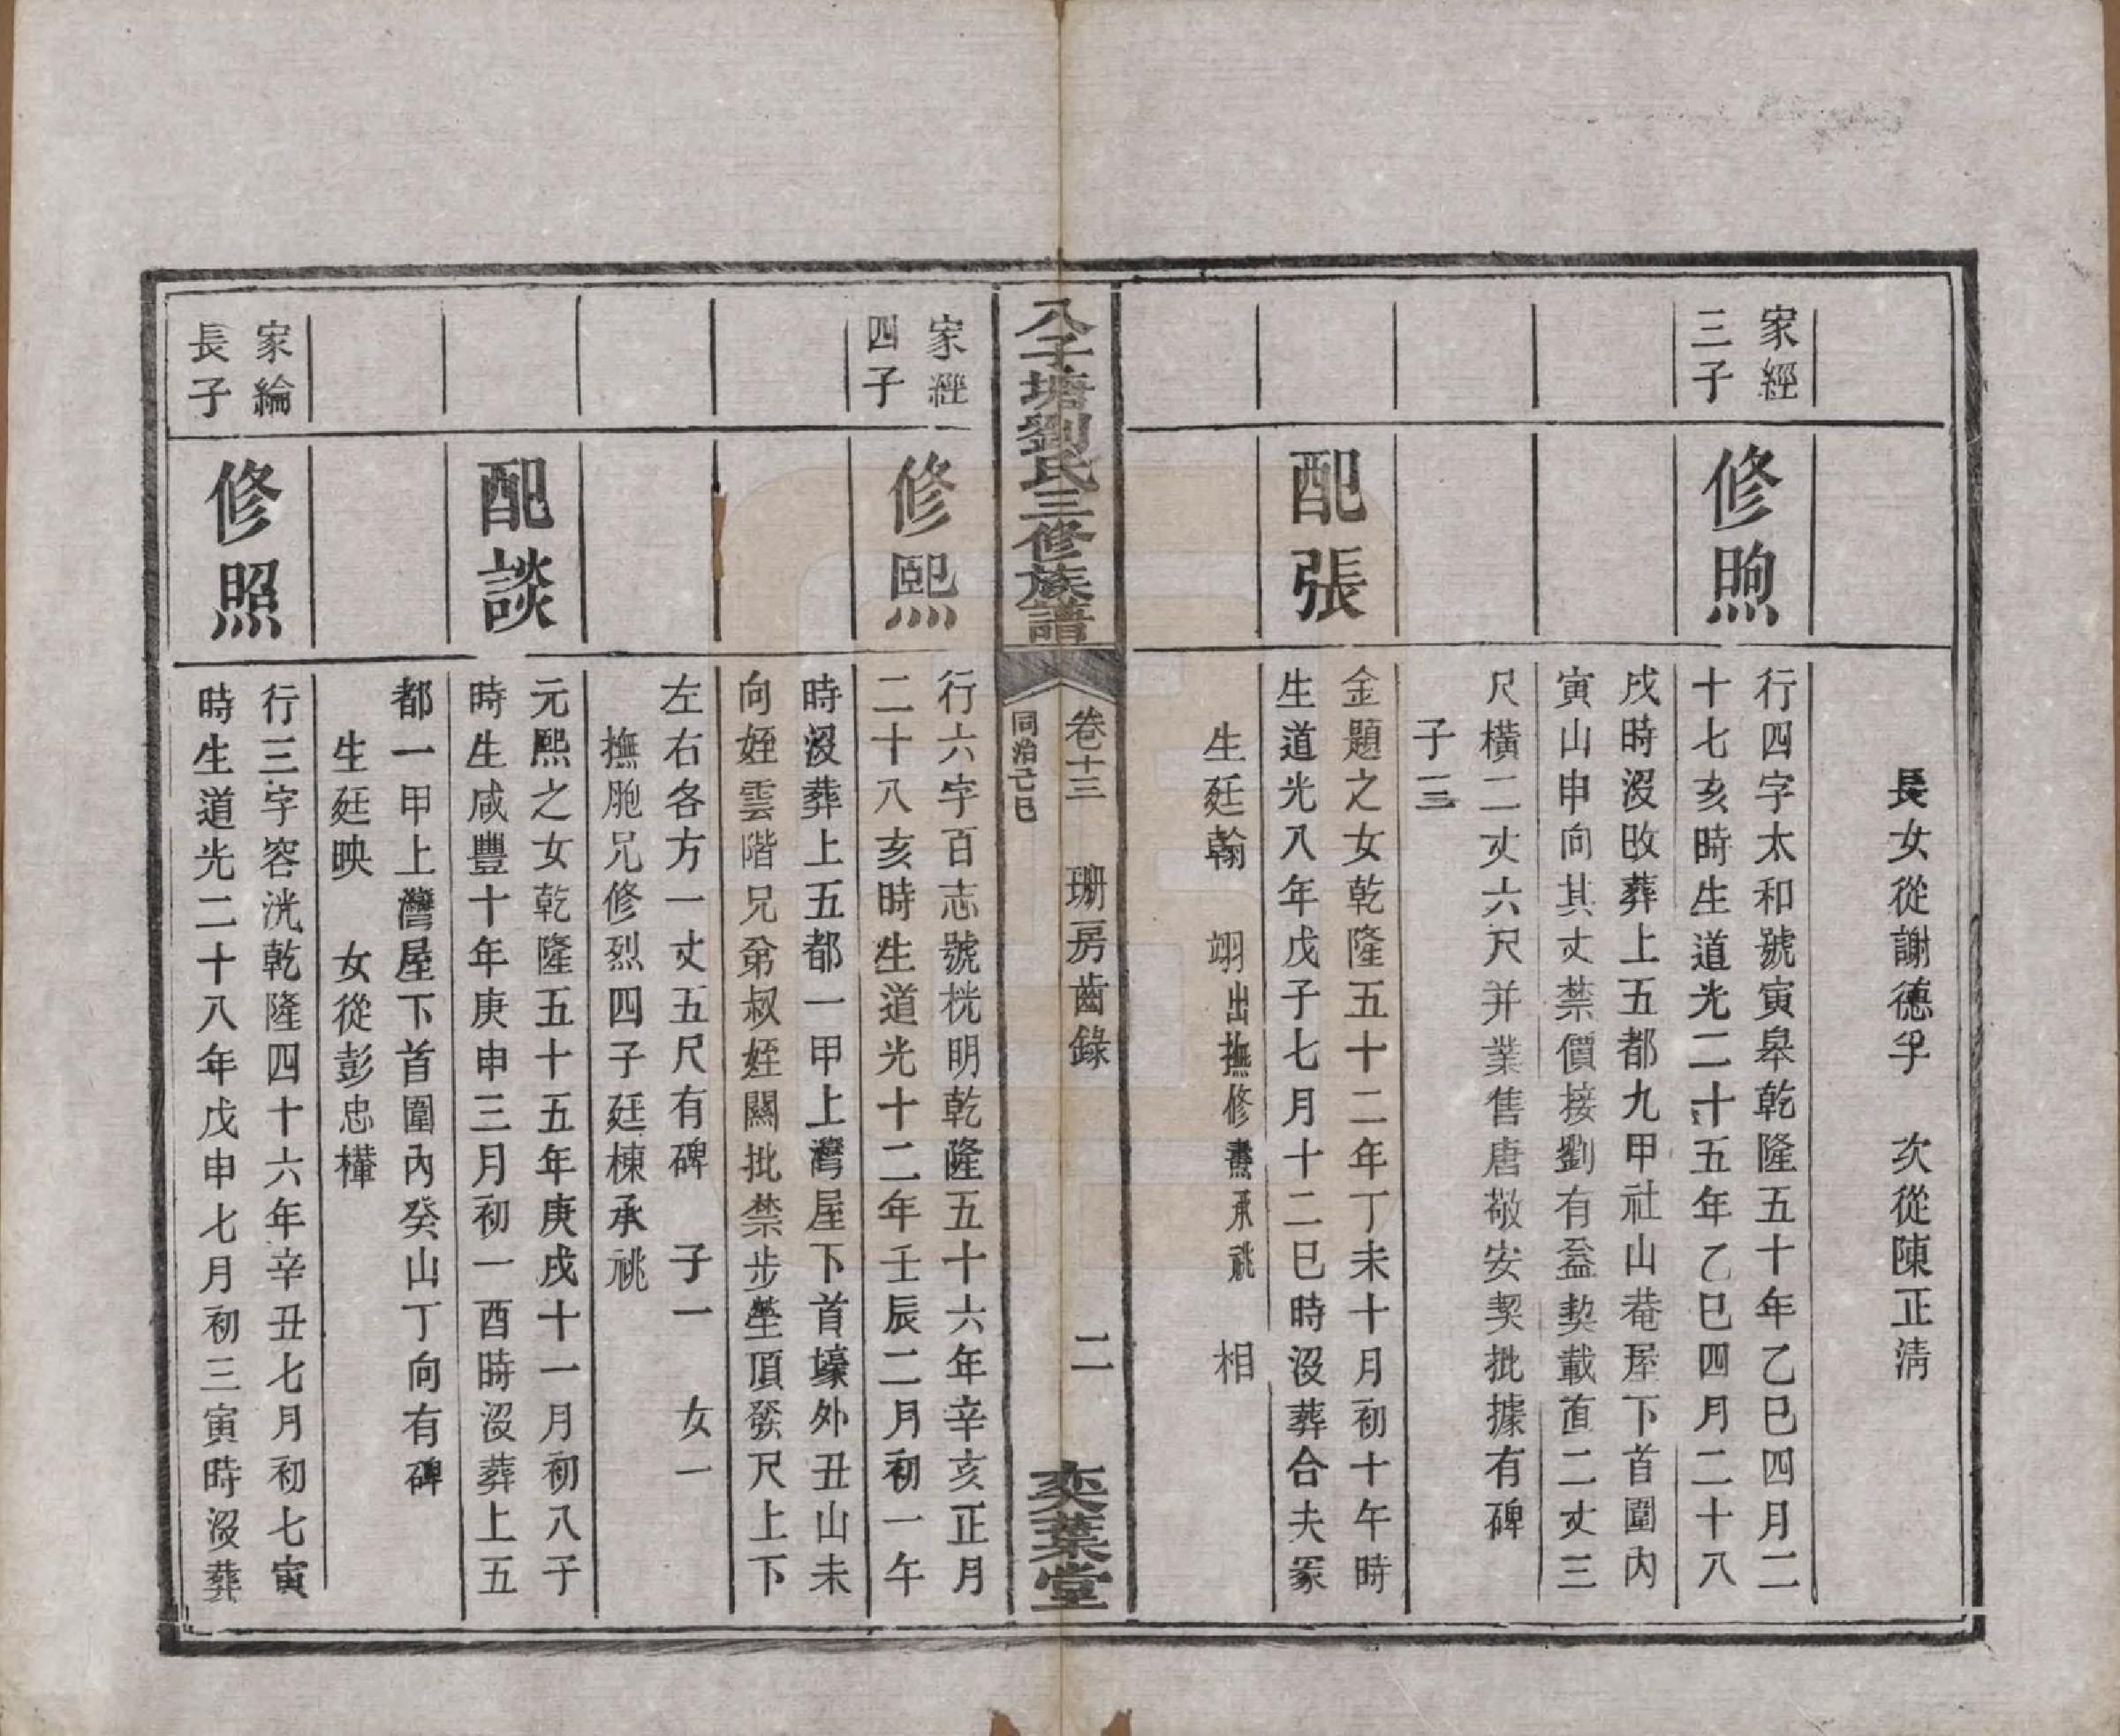 長女從謝德孚　次從陳正淸
家經
三子
修煦
行四字太和號寅皋乾隆五十年乙巳四月二
十七亥時生道光二十五年乙巳四月二十八
戌時沒改葬上五都九甲社山菴屋下首圍內
寅山申向其丈禁價接劉有益契載直二丈三
尺橫二丈六尺并業售唐敬安契批據有碑
子三
配張
金題之女乾隆五十二年丁未十月初十午時
生道光八年戊子七月十二巳時沒葬合夫冢
生廷翰　翊出撫修燾承祧　相
八子塘劉氏三修族譜
卷十三　珊房齒錄　二
同治己巳
奕葉堂
家經
四子
修熙
行六字百志號桄明乾隆五十六年辛亥正月
二十八亥時生道光十二年壬辰二月初一午
時沒葬上五都一甲上灣屋下首壕外丑山未
向姪雲階兄弟叔姪關批禁步塋頂發尺上下
左右各方一丈五尺有碑　子一　女一
撫胞兄修烈四子廷棟承祧
配談
元熙之女乾隆五十五年庚戌十一月初八子
時生咸豐十年庚申三月初一酉時沒葬上五
都一甲上灣屋下首圍內癸山丁向有碑
生廷映　女從彭忠㰏
家綸
長子
修照
行三字容洸乾隆四十六年辛丑七月初七寅
時生道光二十八年戊申七月初三寅時沒葬